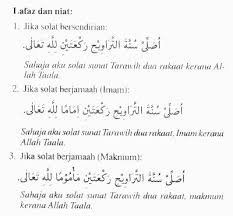 Lafaz dan niat:
1. Jika solat bersendirian:
أُصَلِّيْ سُنَّةَ التَّرَاوِيْحِ رَكْعَتَيْنِ لِلّٰهِ تَعَالٰى.
Sahaja aku solat sunat Tarawih dua rakaat kerana Al-
lah Taala.
2. Jika solat berjamaah (Imam):
أُصَلِّيْ سُنَّةَ التَّرَاوِيْحِ رَكْعَتَيْنِ اِمَامًا لِلّٰهِ تَعَالٰى.
Sahaja aku solat sunat Tarawih dua rakaat, Imam kerana
Allah Taala.
3. Jika solat berjamaah (Makmum):
أُصَلِّيْ سُنَّةَ التَّرَاوِيْحِ رَكْعَتَيْنِ مَأْمُوْمًا لِلّٰهِ تَعَالٰى.
Sahaja aku solat sunat Tarawih dua rakaat, makmum
kerana Allah Taala.